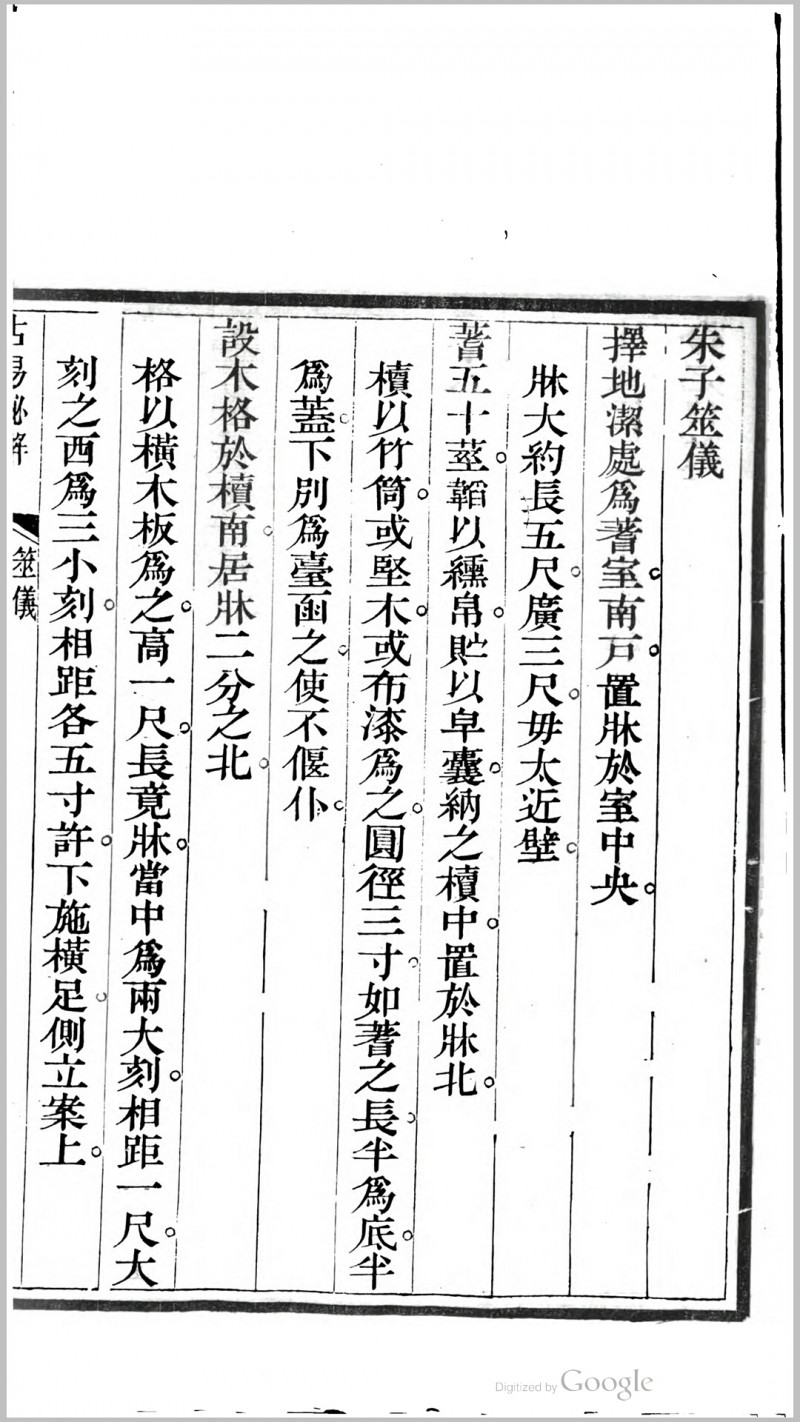 朱子筮儀
擇地潔處爲蓍室。南戸。置牀於室中央。
牀大約長五尺。廣三尺。毋太近壁。
蓍五十莖。韜以纁帛。貯以皁囊。納之櫝中。置於牀北。
櫝以竹筒。或堅木。或布漆爲之。圓徑三寸。如蓍之長。半爲底。半
爲蓋。下別爲臺函之。使不偃仆。
設木格於櫝南。居牀二分之北。
格以橫木板爲之。高一尺。長竟牀。當中爲兩大刻。相距一尺。大
刻之西爲三小刻。相距各五寸許。下施橫足。側立案上。
古易祕解
筮儀
Digitized by Google